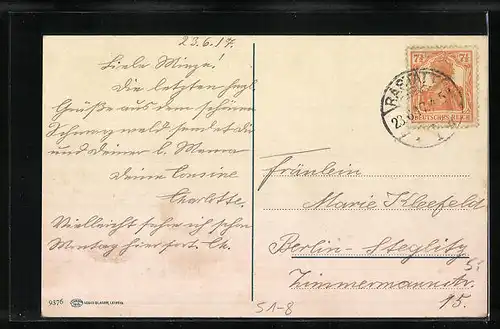 23.6.17.
Liebe Miezе!
Die letzten herzl.
Grüße aus dem schönen
Schwarzwald sendet dir
und deiner l. Mama
Deine Cousine
Charlotte.
Vielleicht fahre ich schon
Montag hier fort. Ch.
7½ 7½
RASTATT
23.6.
DEUTSCHES REICH
Fräulein
Marie Kleefeld
Berlin-Steglitz
Zimmermannstr.
15.
9376
51-8